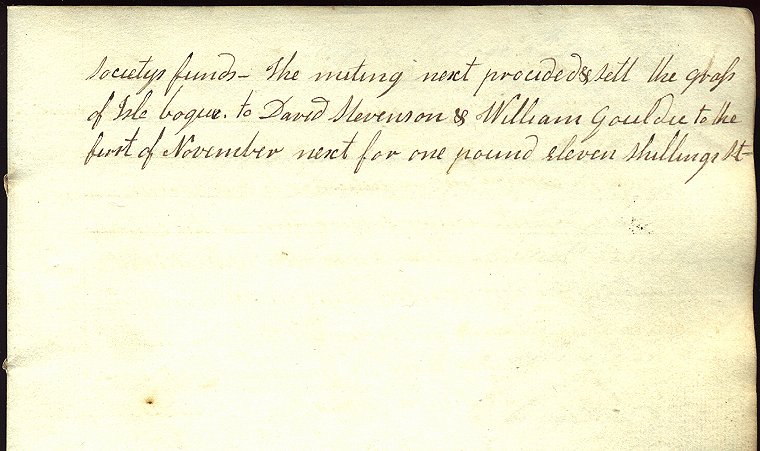 Societys funds - The meting next proceded & sett the grass
of Isle bogue. to David Stevenson & William Gouldie to the
first of November next for one pound eleven shillings st-